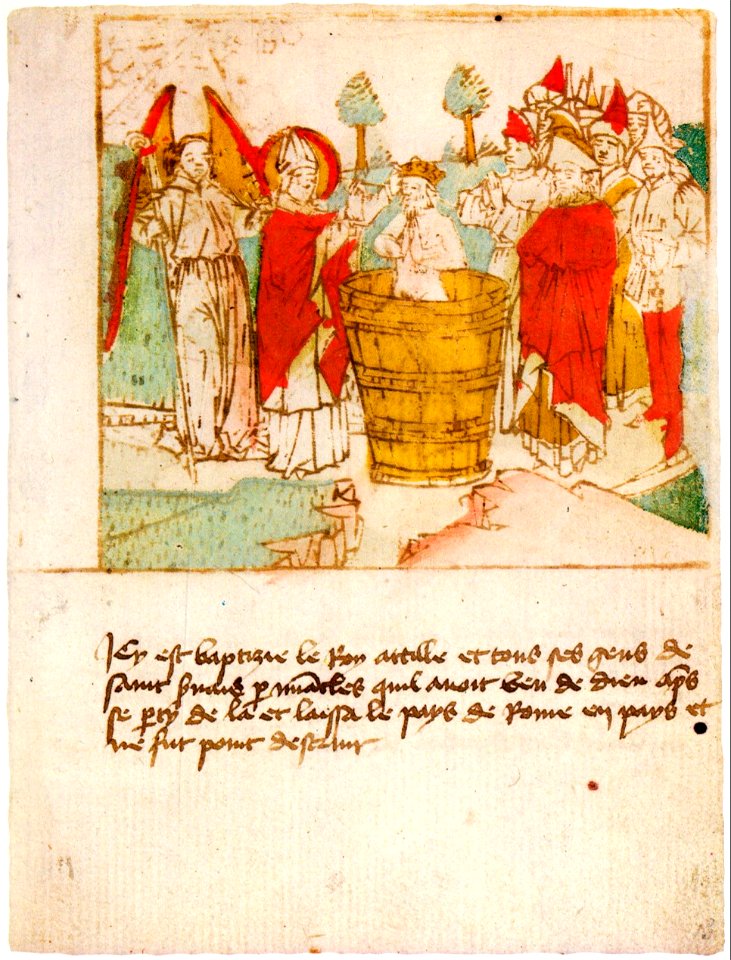 Icy est baptizie le Roy attille et tous ses gens de
saint servais p miracles quil avoit veu de dieu aps
se pty de la et laissa le pays de Rome en pays et
ne fut point destruit